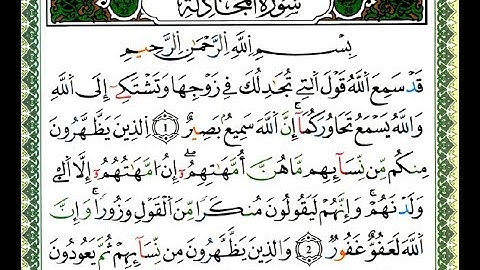 سُورَةُ المُجَادلَةِ
بِسْمِ اِللَّهِ اِلرَّحْمَٰنِ اِلرَّحِيمِ
قَد سَّمِعَ اَللَّهُ قَوْلَ اَلتِے تُجَٰدِلُكَ فِے زَوْجِهَا وَتَشْتَكِےٓ إِلَى اَللَّهِ
وَاللَّهُ يَسْمَعُ تَحَاوُرَكُمَآ إِنَّ اَللَّهَ سَمِيعٌ بَصِيرٌ 1 اِلذِينَ يَظَّهَّرُونَ
مِنكُم مِّن نِّسَآئِهِم مَّا هُنَّ أُمَّهَٰتِهِمُۥٓ إِنْ أُمَّهَٰتُهُمُۥٓ إِلَّا اَلَٰٓے
وَلَدْنَهُمْ وَإِنَّهُمْ لَيَقُولُونَ مُنكَراً مِّنَ اَلْقَوْلِ وَزُوراً وَإِنَّ
اَللَّهَ لَعَفُوٌّ غَفُورٌ 2 وَالذِينَ يَظَّهَّرُونَ مِن نِّسَآئِهِمْ ثُمَّ يَعُودُونَ